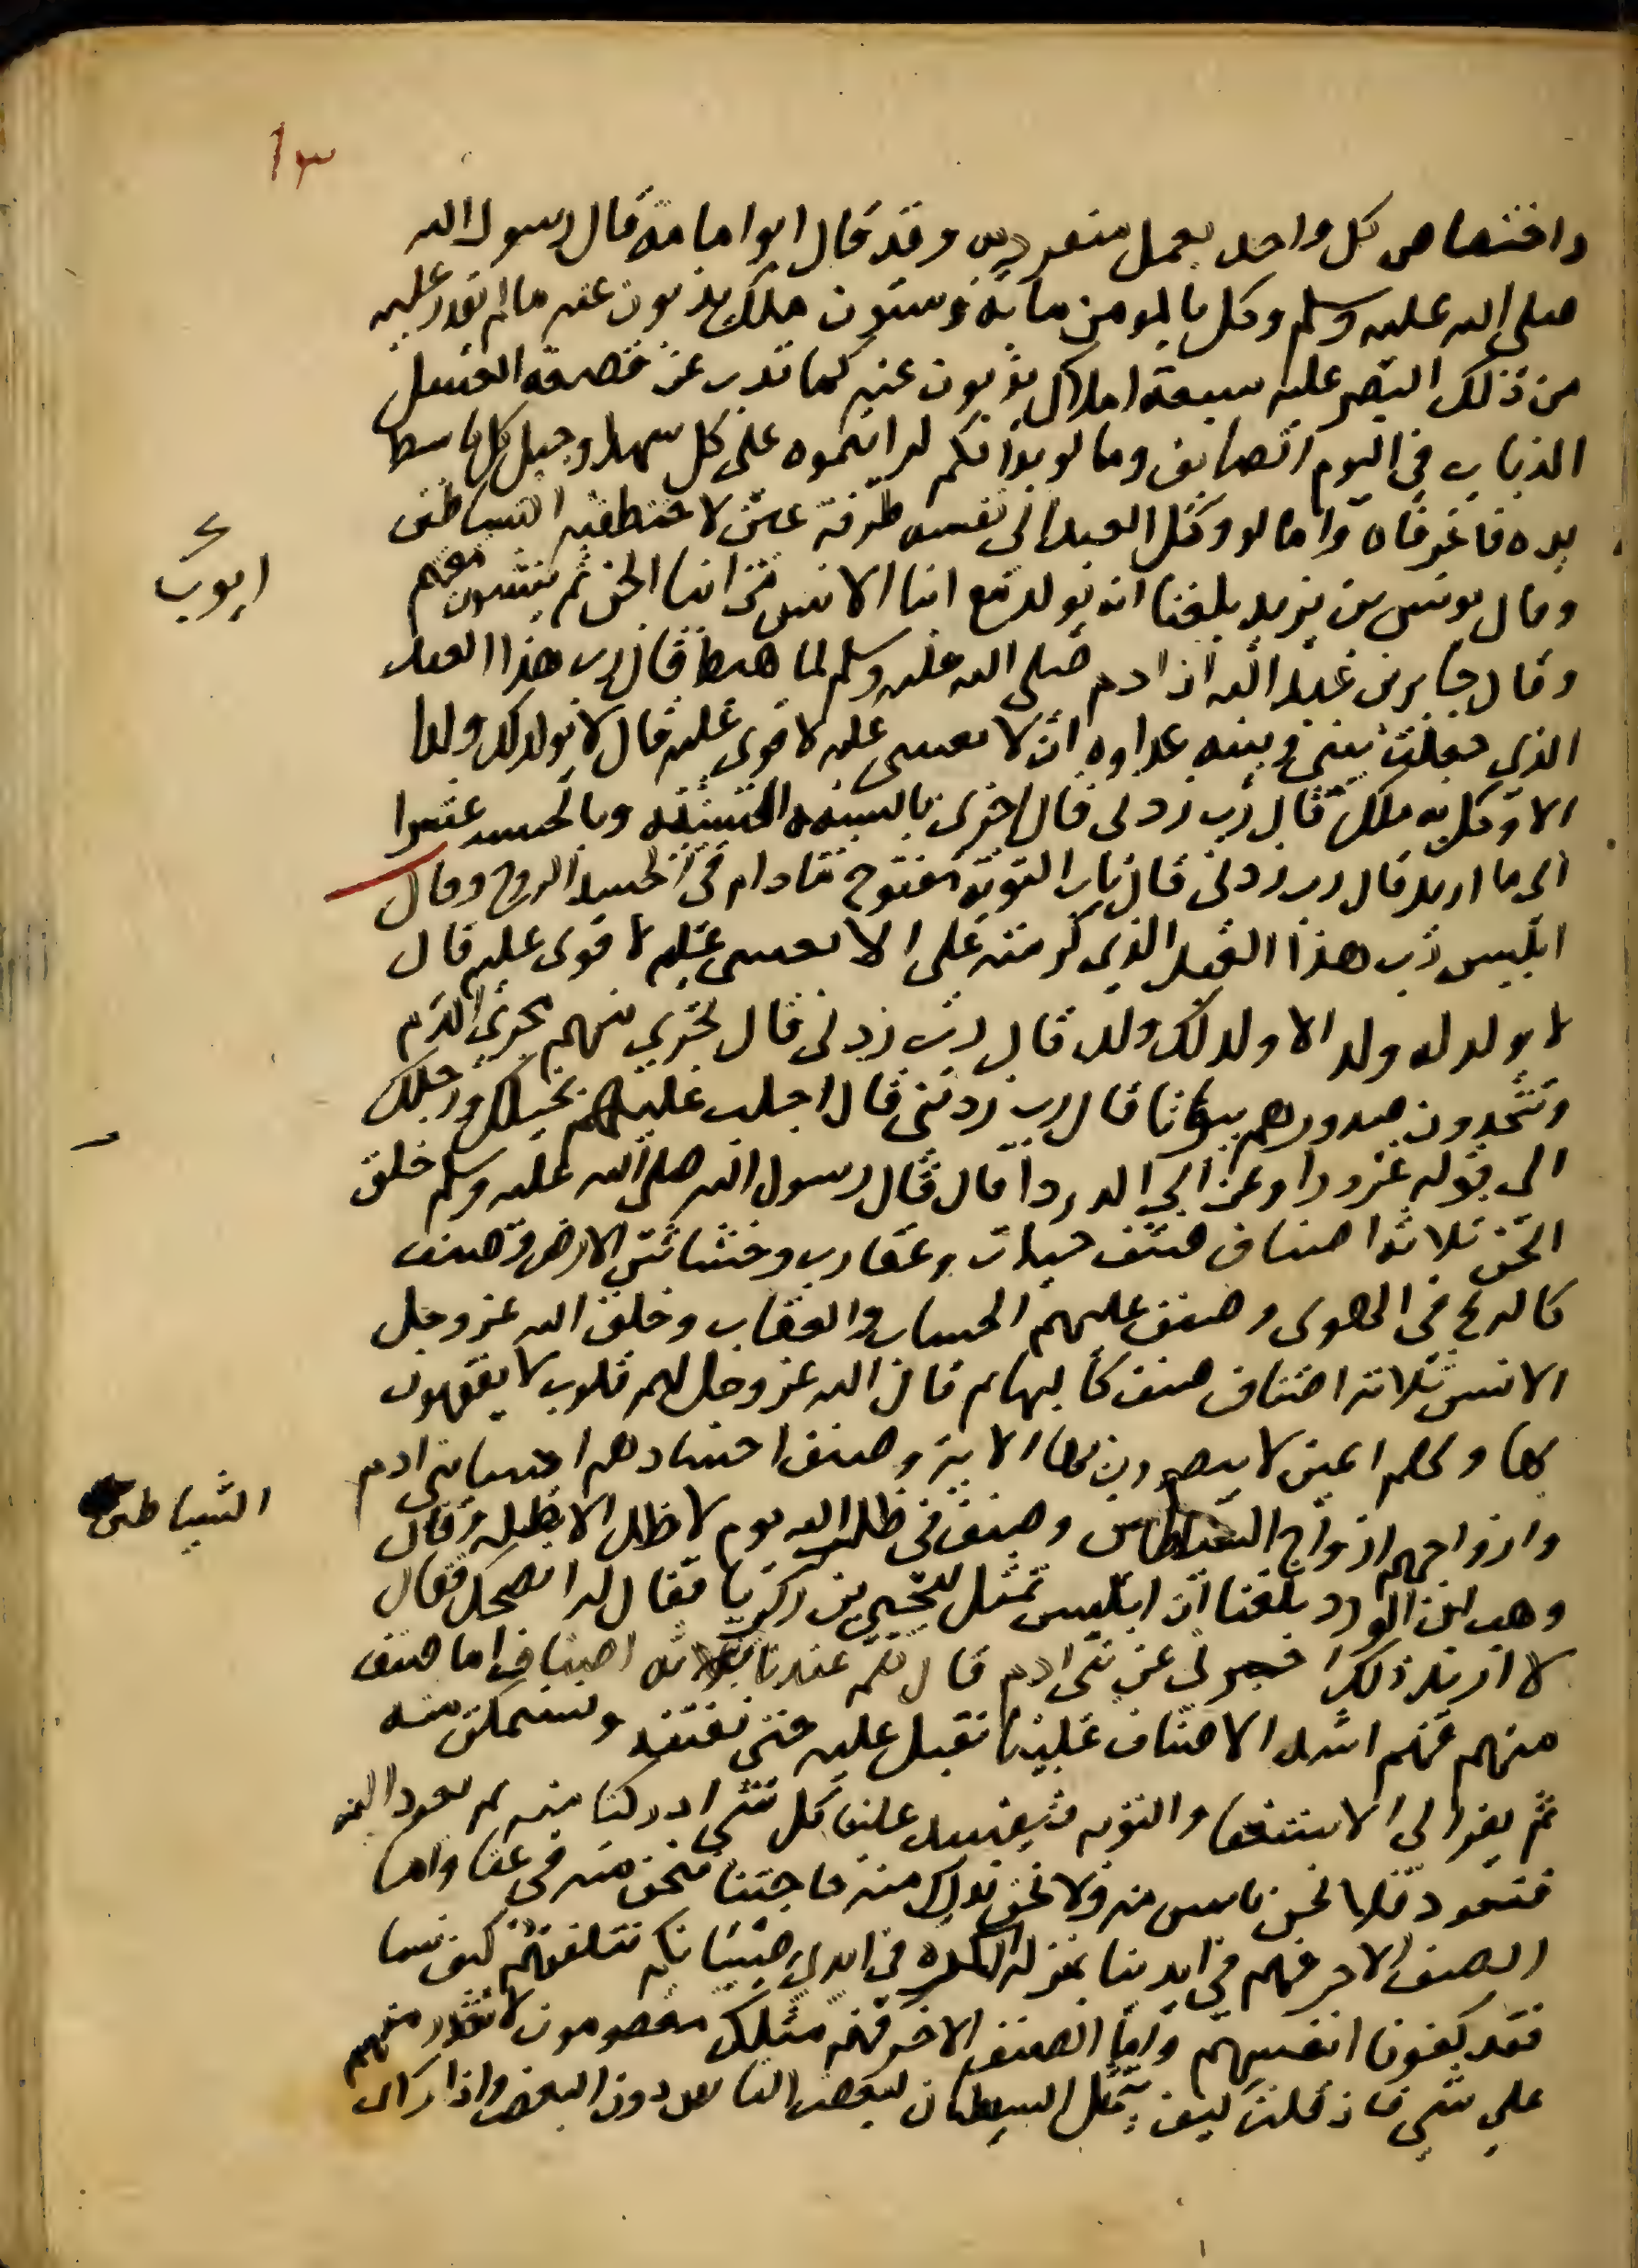 ١٣
واختصاص كل واحد بعمل منفرد به وقد قال ابو امامة قال رسول الله
صلى الله عليه وسلم وكل بالمومن ماية وستون ملك يذبون عنه ما لم يقدر عليه
من ذلك البصر عليه سبعة املاك يذبون عنه كما يذب عن قصعة العسل
الذباب في اليوم الصايف وما لو بدا لكم لرايتموه على كل سهل وجبل كل باسط
يده فاغرفاه وما لو وكل العبد الى نفسه طرفة عين لاختطفته الشياطين
وقال يونس بن يزيد بلغنا انه يولد مع ابنا الانس من ابنا الجن ثم ينشون معهم
ايوب
وقال جابر بن عبد الله ان ادم صلى الله عليه وسلم لما هبط قال رب هذا العبد
الذي جعلت بيني وبينه عداوه ان لا تعينني عليه لا قوى عليه قال لا يولد لك ولد
الا وكل به ملك قال رب زدني قال اجزي بالسيئه السيئه وبالحسنه عشرا
الى ما اريد قال رب زدني قال باب التوبة مفتوح مادام في الجسد الروح وقال
ابليس رب هذا العبد الذي كرمته على الا تعينني عليه لا قوى عليه قال
لا يولد له ولد الا ولد لك ولد قال رب زدني قال تجري منهم مجرى الدم
وتتخذون صدورهم بيوتا قال رب زدني قال اجلب عليهم بخيلك ورجلك
الى قوله غرورا وعن ابي الدردا قال قال رسول الله صلى الله عليه وسلم خلق
الجن ثلاثة اصناف صنف حيات وعقارب وخشاش الارض وصنف
كالريح في الهوى وصنف عليهم الحساب والعقاب وخلق الله عز وجل
الانس ثلاثة اصناف صنف كالبهايم قال الله عز وجل لهم قلوب لا يفقهون
بها ولهم اعين لا يبصرون بها الاية وصنف اجسادهم اجساد بني ادم
وارواحهم ارواح الشياطين وصنف في ظل الله يوم لا ظل الا ظله وقال
الشياطين
وهب ابن الورد بلغنا ان ابليس تمثل ليحيى بن زكريا فقال له انصحك فقال
لا اريد ذلك اخبرني عن بني ادم قال هم عندنا ثلاثة اصناف اما صنف
منهم فهم اشد الاصناف علينا نقبل عليه حتى نفتنه ونستمكن منه
ثم يفزع الى الاستغفار والتوبه فيفسد علينا كل شي ادركنا منه ثم نعود اليه
فيعود فلا نحن نايس منه ولا نحن ندرك منه حاجتنا فنحن منه في عنا واما
الصنف الاخر فهم في ايدينا بمنزلة الكره في ايدي صبيانكم نتلقفهم كيف شينا
فقد كفونا انفسهم واما الصنف الاخر فهم مثلك معصومون لا نقدر منهم
على شي فان قلت كيف يتمثل الشيطان لبعض الناس دون البعض واذا راى